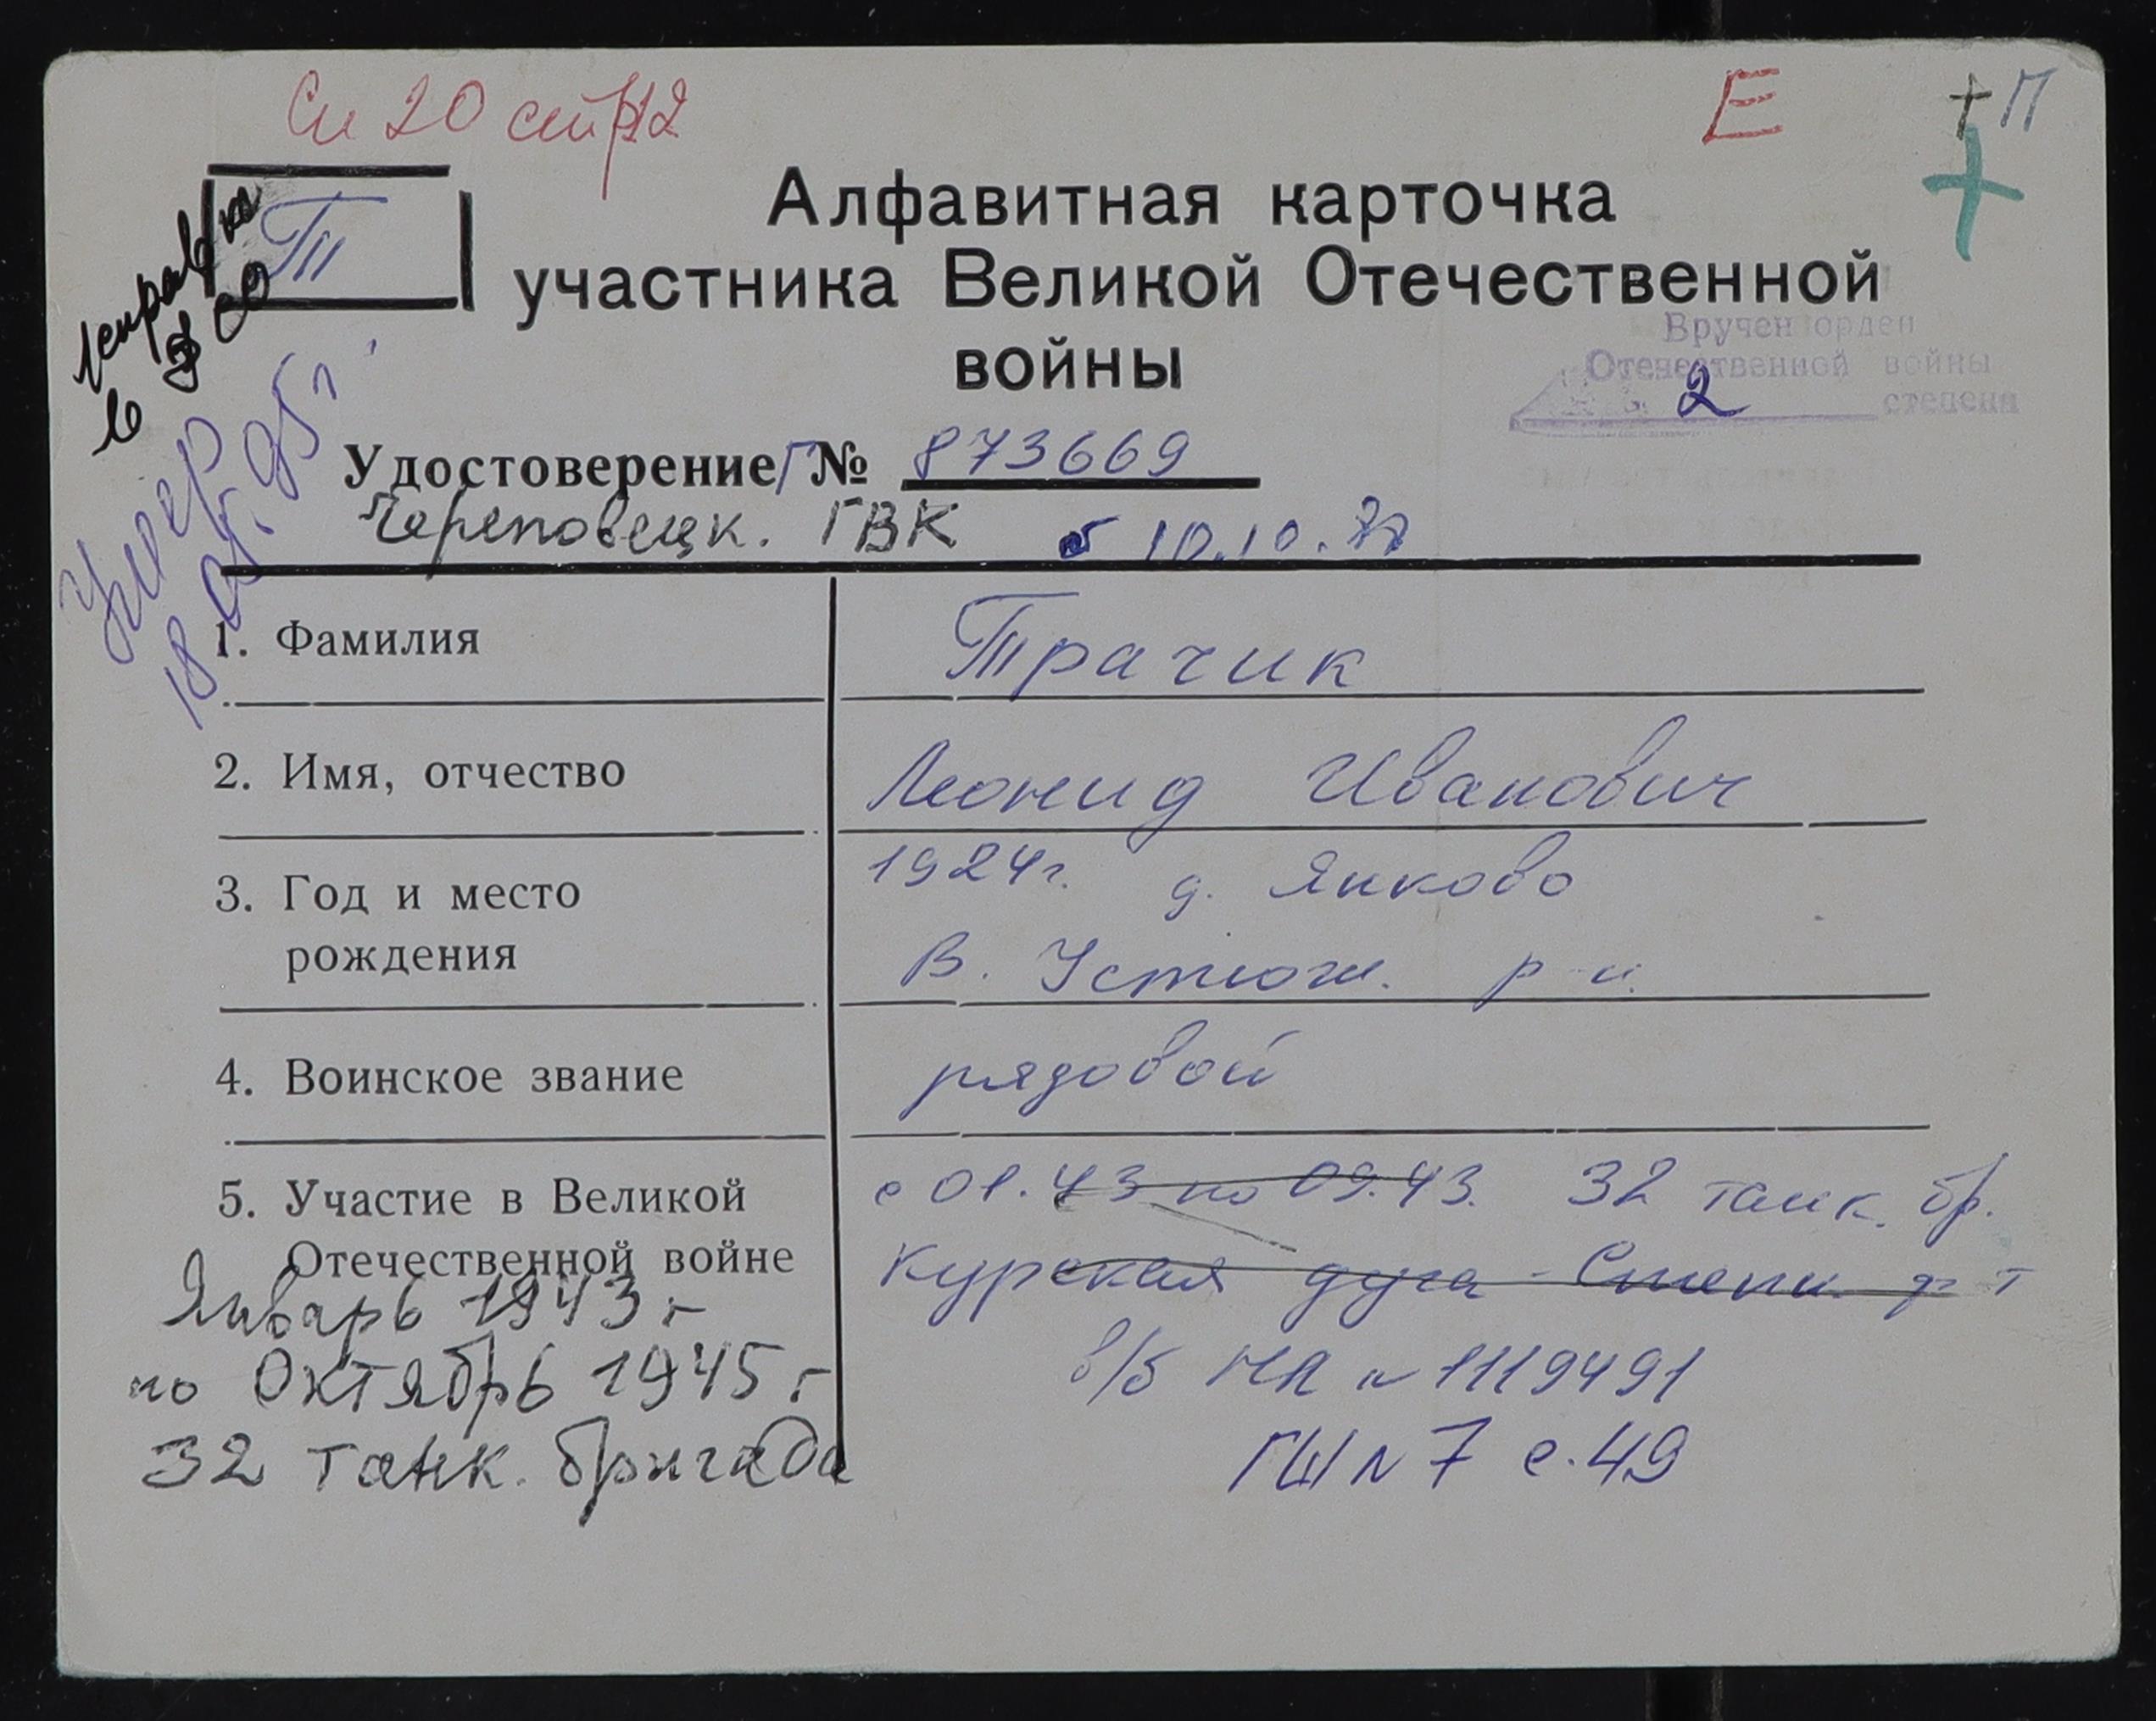 См 20 стр 12
Е
+ П
Т
Алфавитная карточка
участника Великой Отечественной
войны
Вручен орден
Отечественной войны
2 степени
Умер
18.05.95г.
Удостоверение Г № 873669
Череповецк. ГВК от 10.10.
1. Фамилия Трачик
2. Имя, отчество Леонид Иванович
3. Год и место
рождения
1924г. д. Янково
В. Устюж. р-н.
4. Воинское звание рядовой
5. Участие в Великой
Отечественной войне
с 01.43 по 09.43. 32 танк. бр.
Курская дуга - Степн. ф-т
Январь 1943 г
по Октябрь 1945 г
32 танк. бригада
в/б НЛ № 1119491
ГШ № 7 с. 49